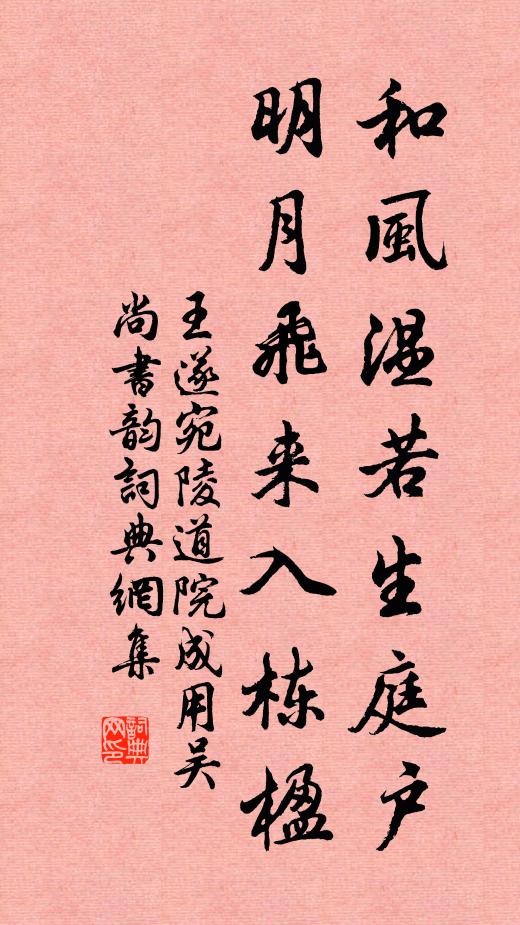 和風温若生庭户
明月飛来入栋楹
王遂宛陵道院成用吴
尚書韵詞典網集
詞典網印